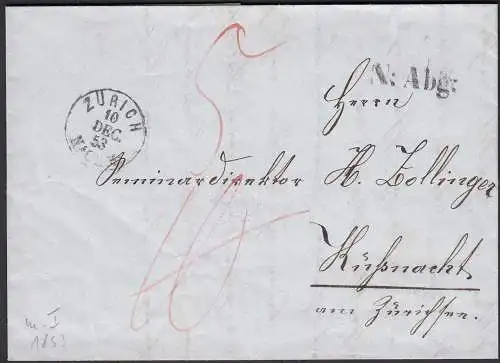 ZÜRICH
10
DEC.
53
N: Abg:
Herrn
Seminardirektor H. Zollinger
Küßnacht
am Zürichsee.
1853